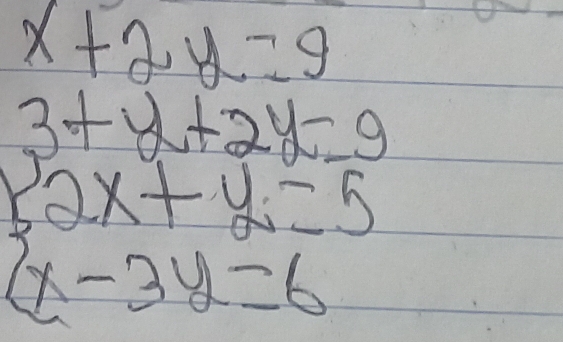 x + 2y = 9
3 + y + 2y = 9
{ 2x + y = 5
x - 3y = 6